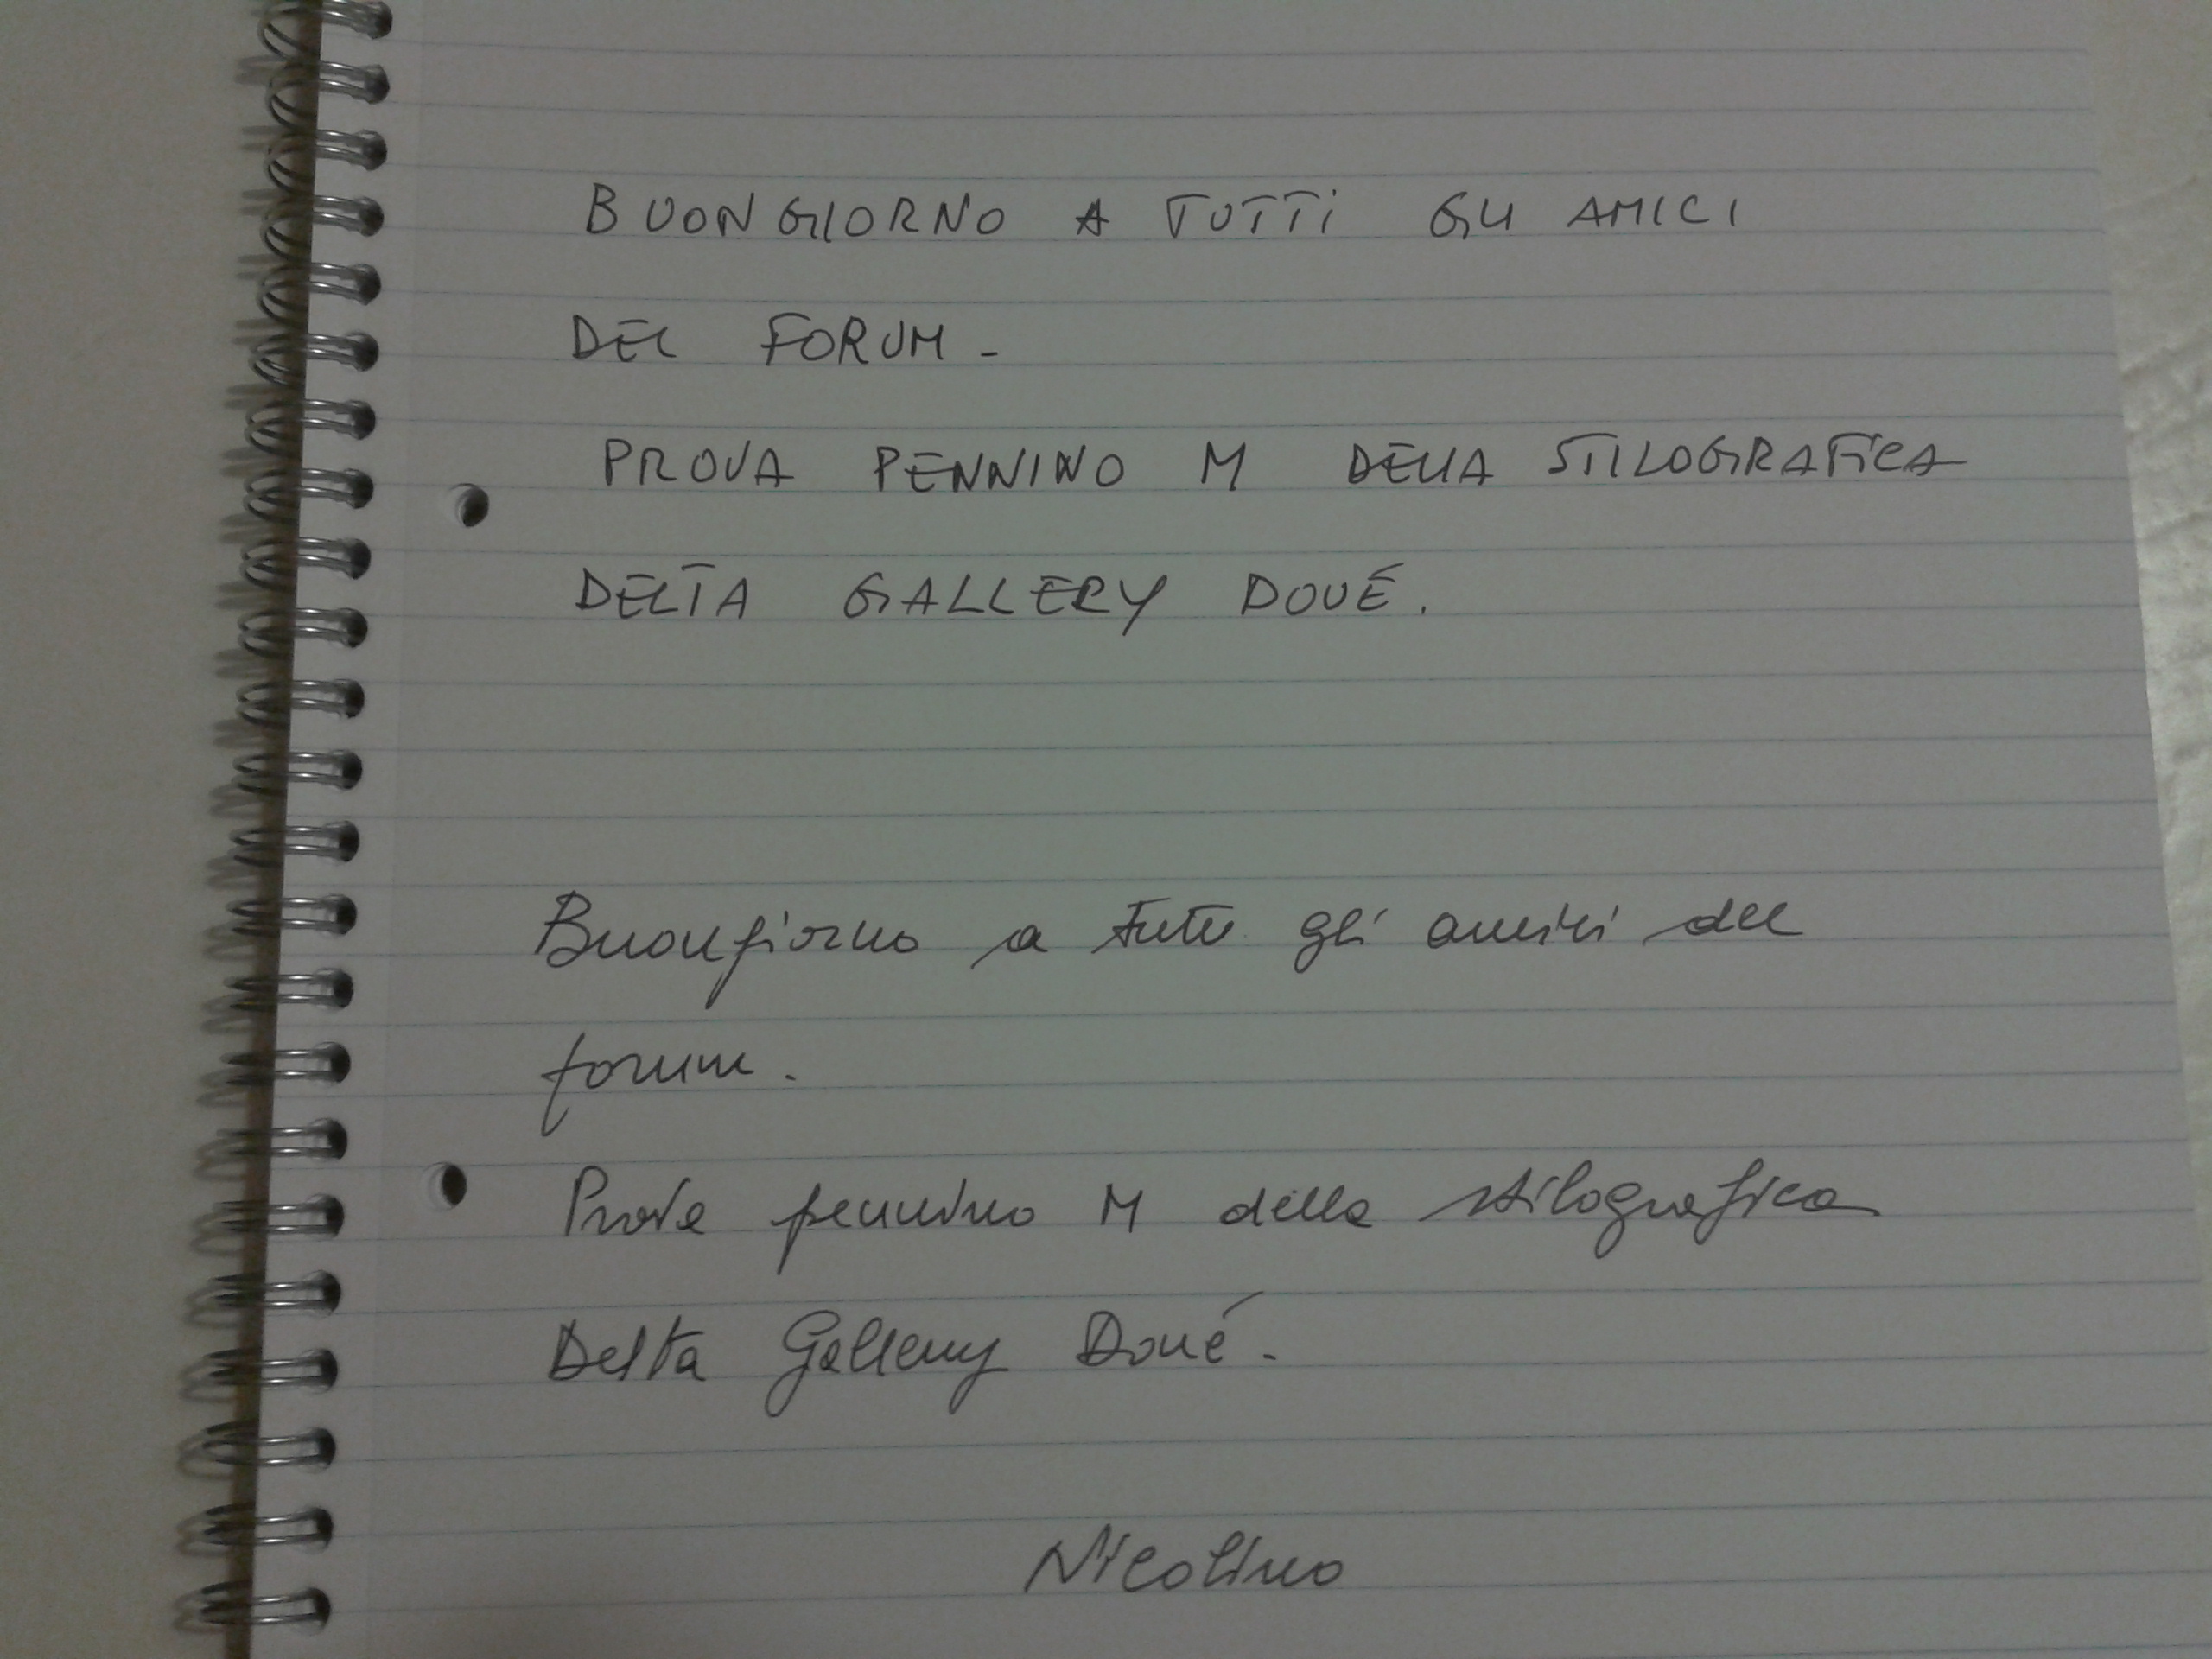 BUONGIORNO A TUTTI GLI AMICI
DEL FORUM -
PROVA PENNINO M DELLA STILOGRAFICA
DELTA GALLERY DOUÉ.
Buongiorno a tutti gli amici del
forum.
Prova pennino M della stilografica
Delta Gallery Doué.
Nicolino